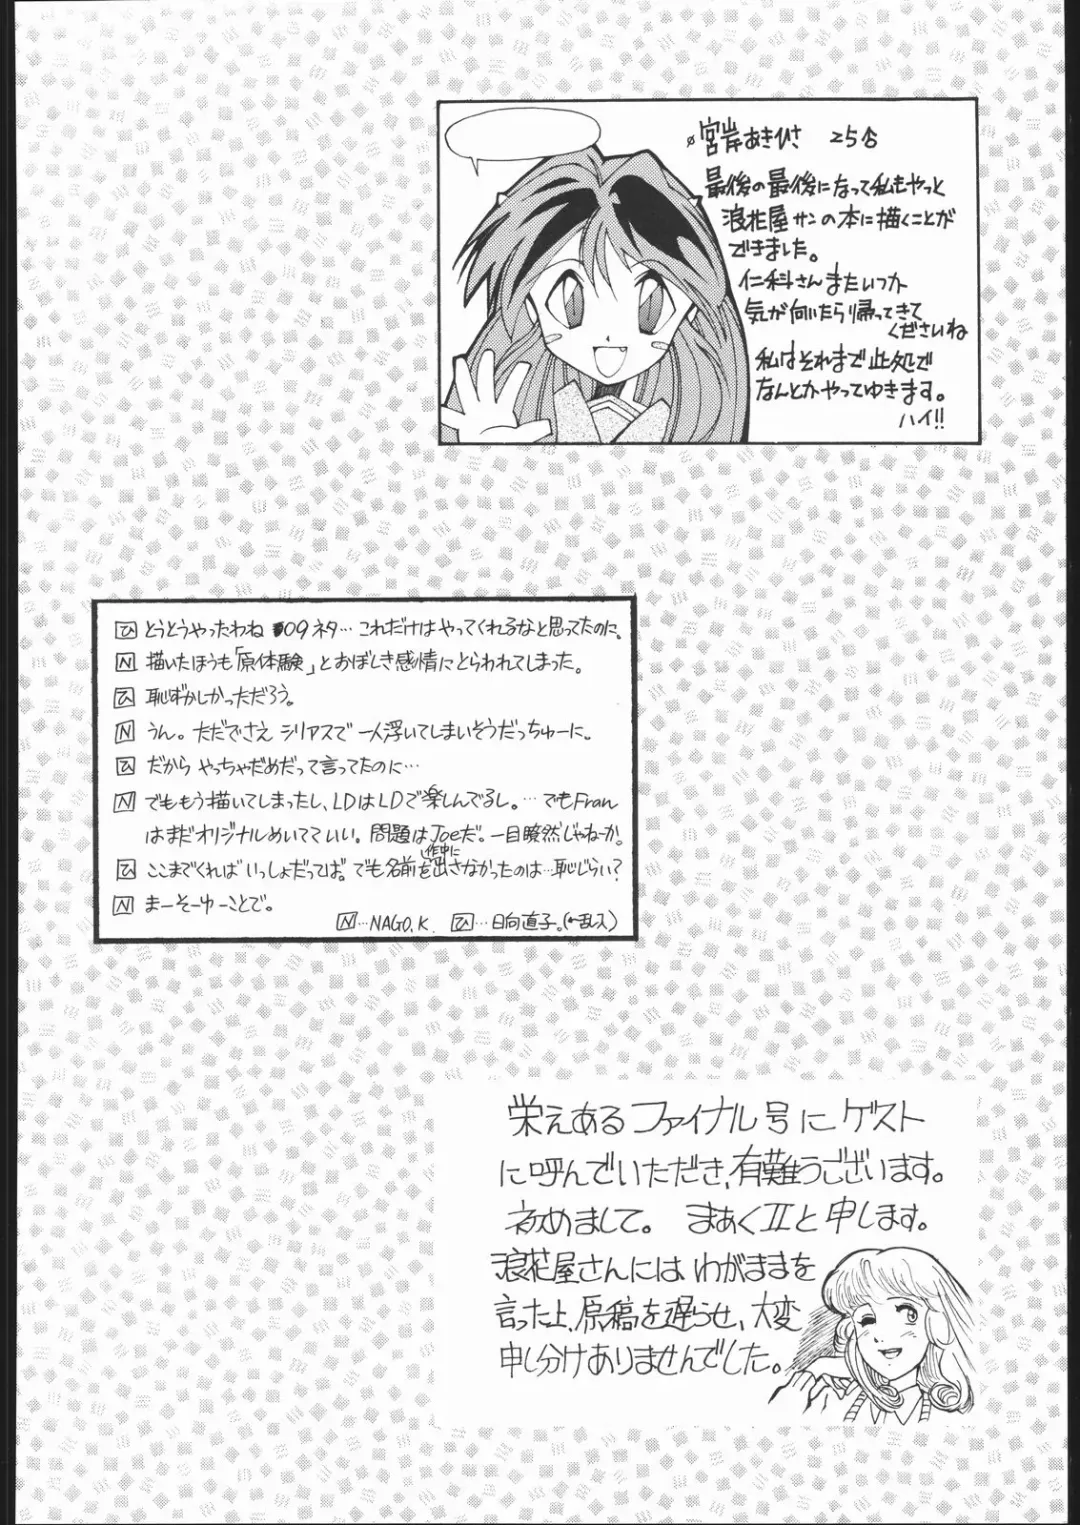 宮岸あきひさ 25才
最後の最後になって私もやっと
浪花屋サンの本に描くことが
できました。
仁科さんまたいつか
気が向いたら帰ってきて
くださいね
私はそれまで此処で
なんとかやってゆきます。
ハイ!!
ひ とうとうやったわね 009ネタ… これだけはやってくれるなと思ってたのに。
N 描いたほうも「原体験」とおぼしき感情にとらわれてしまった。
ひ 恥ずかしかっただろう。
N うん。ただでさえ シリアスで 一人浮いてしまいそうだっちゅーに。
ひ だから やっちゃだめだって言ってたのに…
N でももう描いてしまったし、LDはLDで楽しんでるし。… でもFran
はまだオリジナルめいてていい。問題はJoeだ。一目瞭然じゃねーか。
作中に
ひ ここまでくれば いっしょだってば。でも名前を出さなかったのは…恥じらい?
N まーそーゆーことで。
N…NAGO.K. ひ…日向直子。(←乱入)
栄えあるファイナル号にゲスト
に呼んでいただき、有難うございます。
初めまして。 まあくⅡと申します。
浪花屋さんには、わがままを
言った上、原稿を遅らせ、大変
申し分けありませんでした。